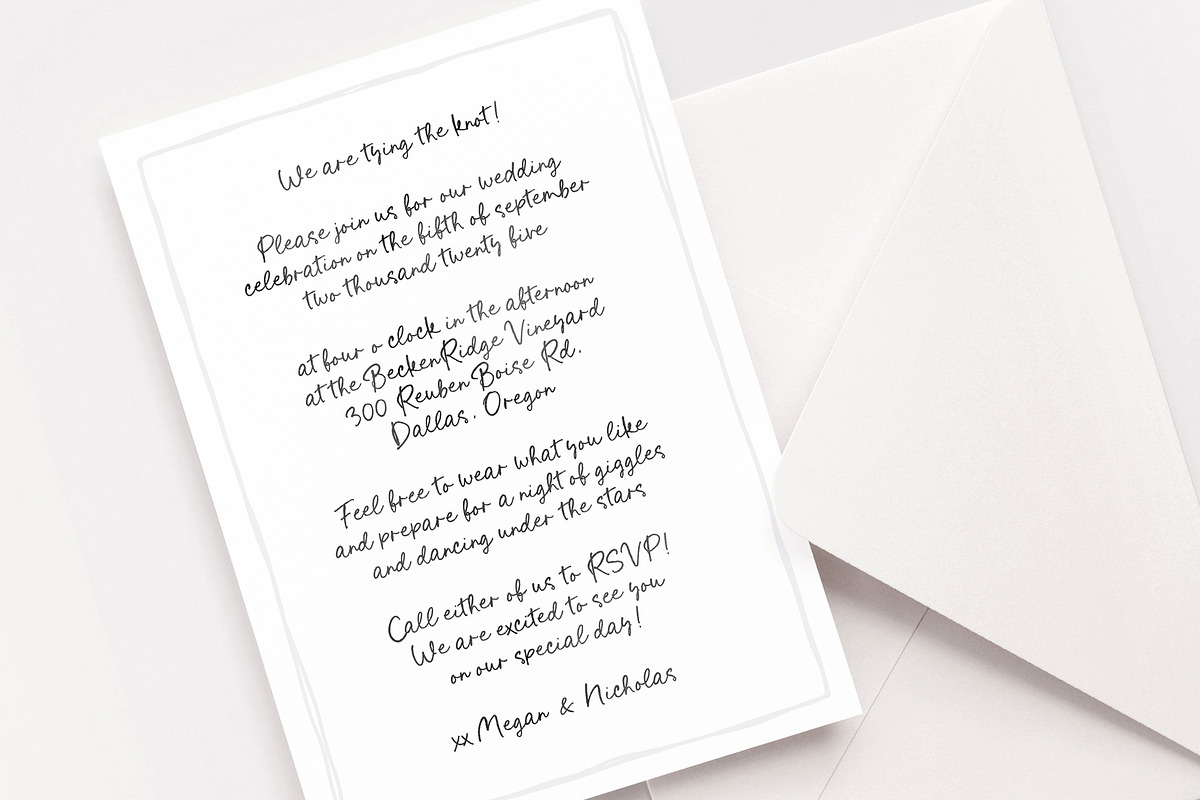 We are tying the knot!
Please join us for our wedding
celebration on the fifth of september
two thousand twenty five
at four o clock in the afternoon
at the BeckenRidge Vineyard
300 Reuben Boise Rd.
Dallas. Oregon
Feel free to wear what you like
and prepare for a night of giggles
and dancing under the stars
Call either of us to RSVP!
We are excited to see you
on our special day!
xx Megan & Nicholas